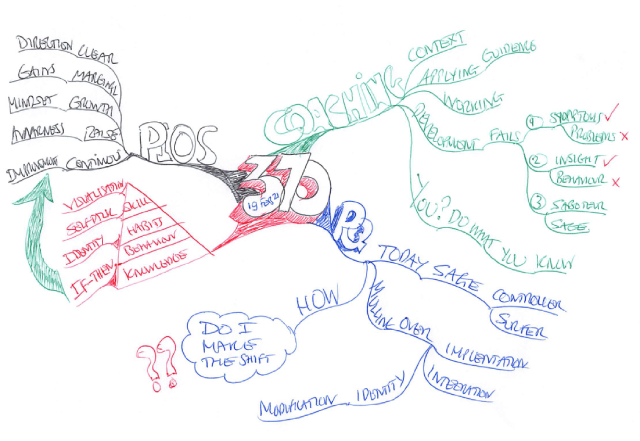 DIRECTION CLEAR
GAINS MARGINAL
MINDSET GROWTH
AWARNESS RAISE
CONTINOUS
PIOS
VISUALISATION
SELF-TALK SKILL
IDENTITY HABIT
IF-THEN BEHAVIOUR
KNOWLEDGE
370
19 FEB 21
COACHING
CONTEXT
APPLYING GUIDENCE
WORKING
DEVELOPMENT FAILS
1 SYMPTOMS ✓
PROBLEMS x
2 INSIGHT ✓
BEHAVIOUR x
3 SABOTEUR
SAGE
YOU? DO WHAT YOU KNOW
PQ
TODAY SAGE CONTROLLER
SURFER
MULLING OVER IMPLENTATION
INTEGRATION
IDENTITY
MODIFICATION
HOW
DO I
MAKE
THE SHIFT
??